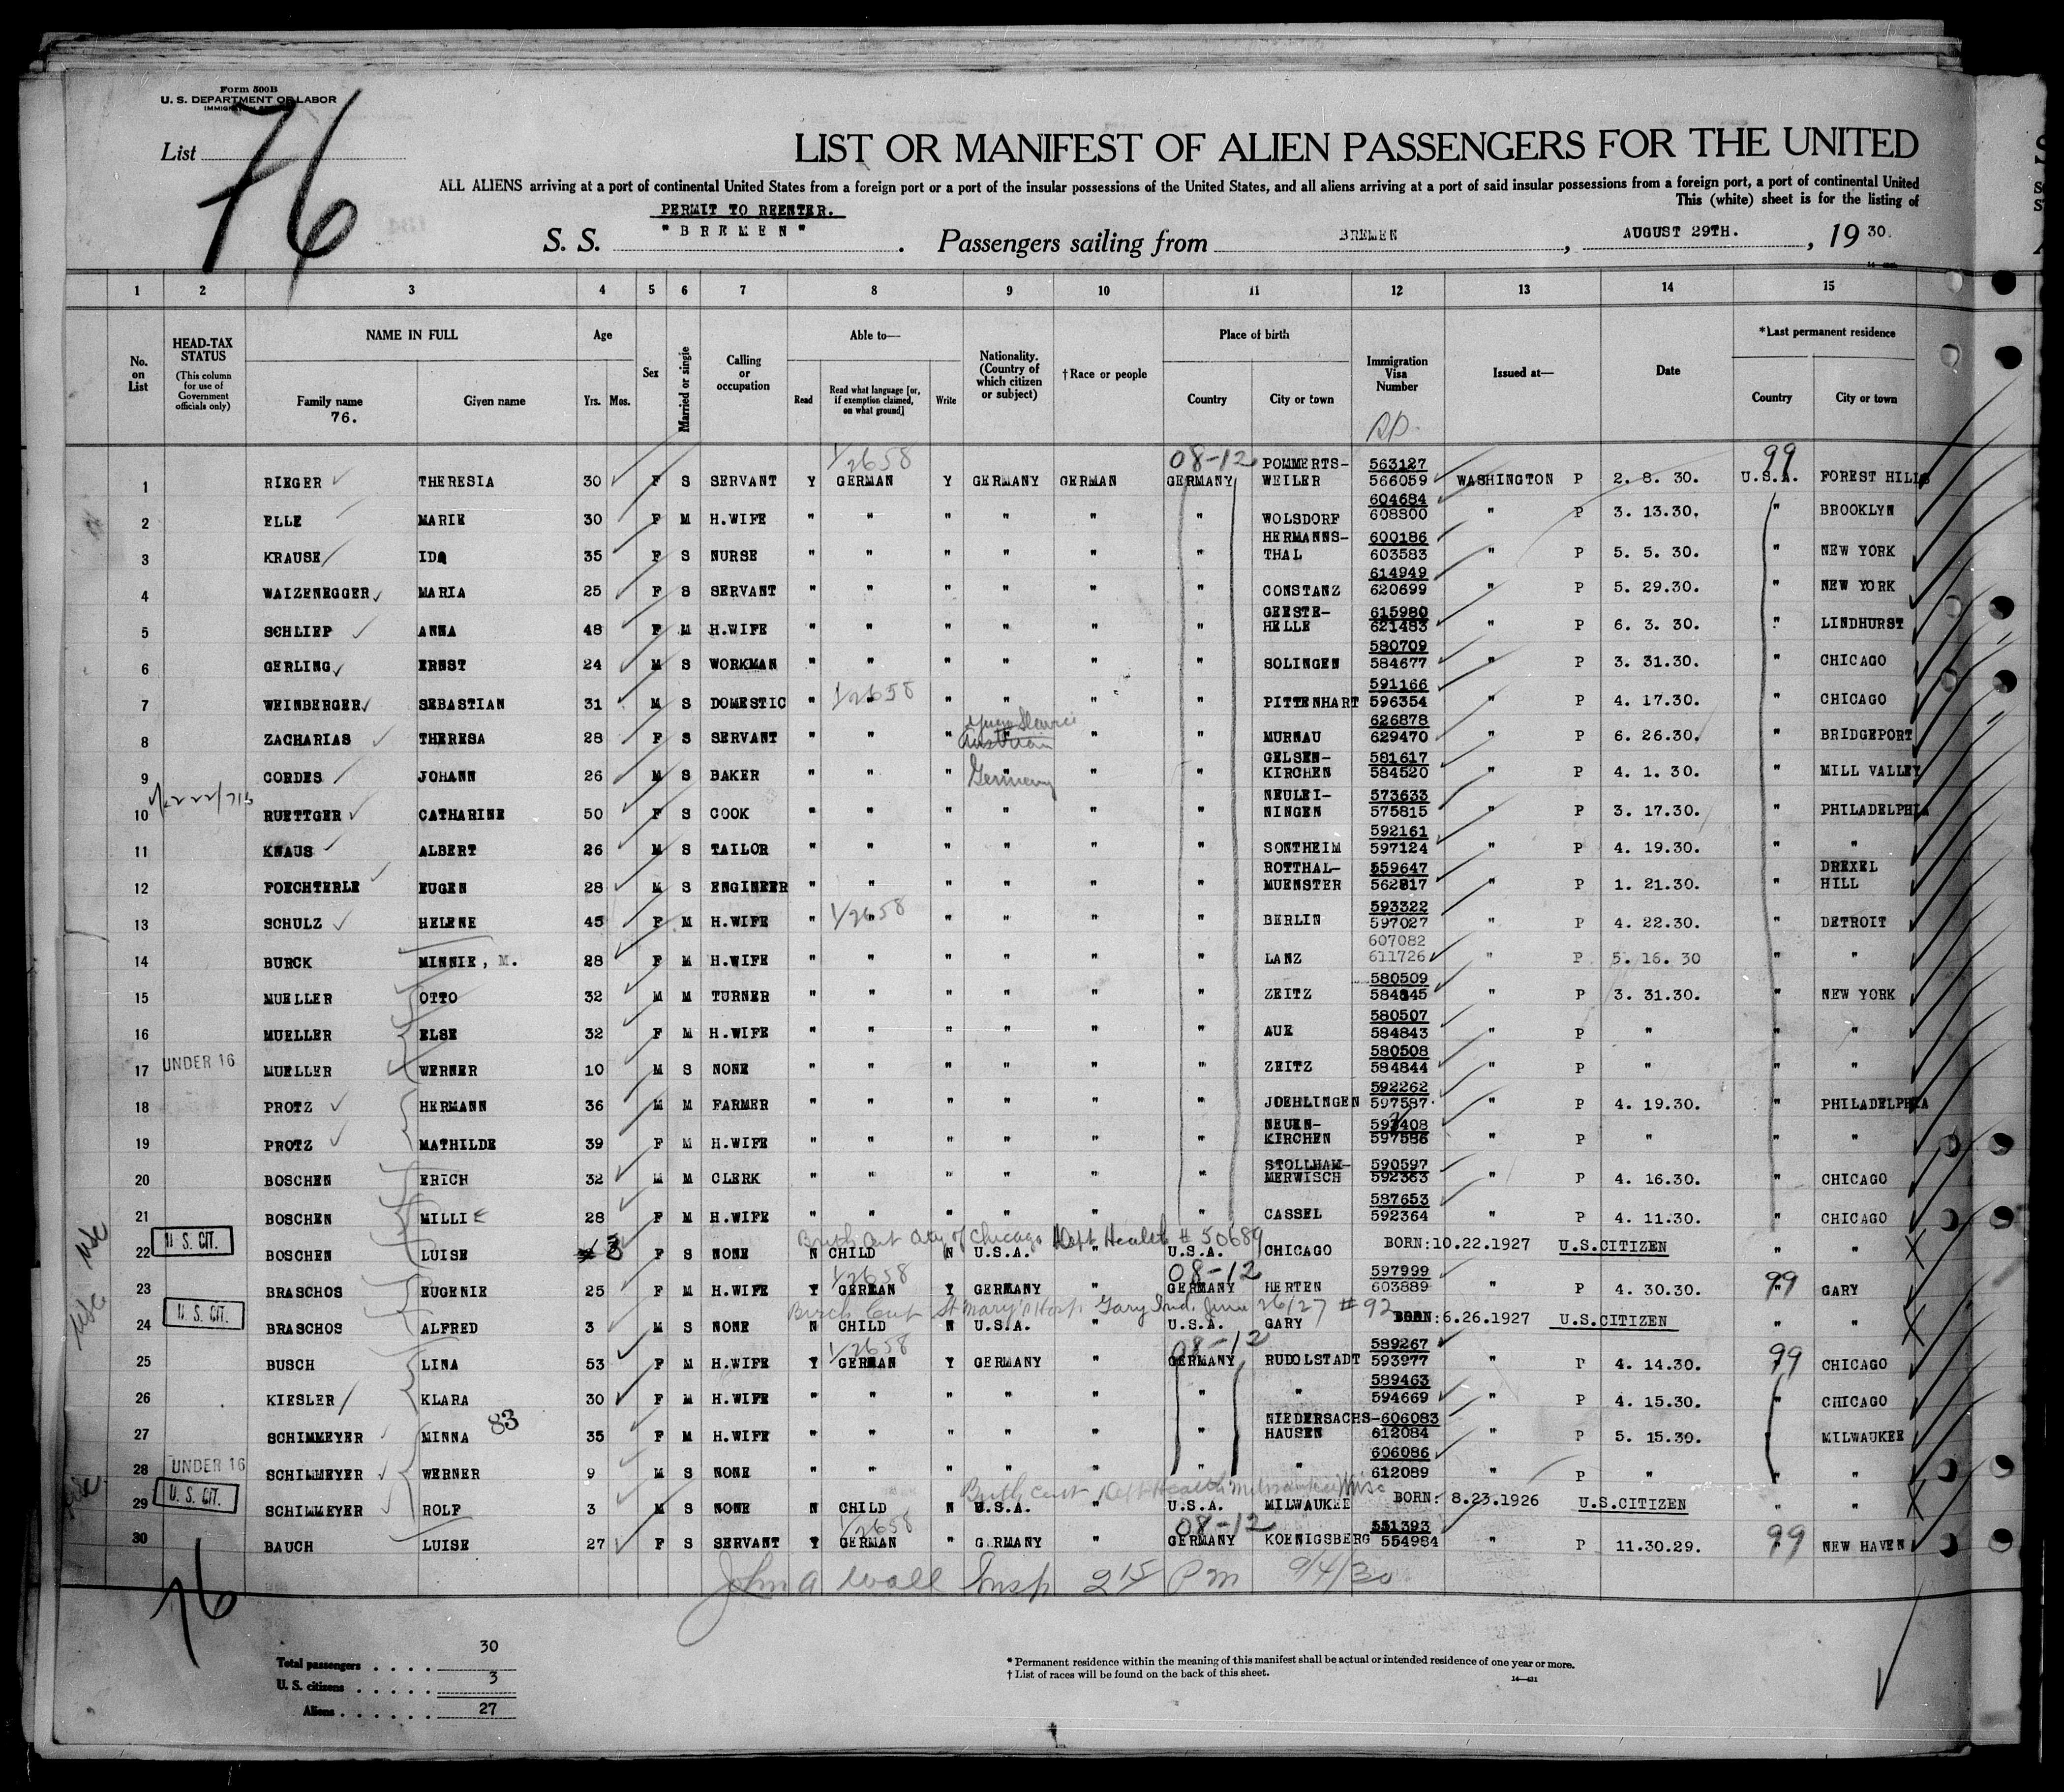 Form 500B
U. S. DEPARTMENT OF LABOR
List 76
LIST OR MANIFEST OF ALIEN PASSENGERS FOR THE UNITED
ALL ALIENS arriving at a port of continental United States from a foreign port or a port of the insular possessions of the United States, and all aliens arriving at a port of said insular possessions from a foreign port, a port of continental United
This (white) sheet is for the listing of
PERMIT TO REENTER.
S. S. "BREMEN". Passengers sailing from BREMEN, AUGUST 29TH., 1930.
1 2 3 4 5 6 7 8 9 10 11 12 13 14 15
No. on List
HEAD-TAX STATUS (This column for use of Government officials only)
NAME IN FULL Family name Given name
76.
Age Yrs. Mos.
Sex
Married or single
Calling or occupation
Able to— Read Read what language [or, if exemption claimed, on what ground] Write
Nationality. (Country of which citizen or subject)
†Race or people
Place of birth Country City or town
Immigration Visa Number
Issued at—
Date
*Last permanent residence Country City or town
1/2658 08-12 99
1 RIEGER THERESIA 30 F S SERVANT Y GERMAN Y GERMANY GERMAN GERMANY POMMERTS-WEILER 563127 566059 WASHINGTON P 2. 8. 30. U.S.A. FOREST HILLS
2 ELLE MARIE 30 F M H.WIFE " " " " " " WOLSDORF 604684 608800 " P 3. 13.30. " BROOKLYN
3 KRAUSE IDA 35 F S NURSE " " " " " " HERMANNS-THAL 600186 603583 " P 5. 5. 30. " NEW YORK
4 WAIZENEGGER MARIA 25 F S SERVANT " " " " " " CONSTANZ 614949 620699 " P 5. 29.30. " NEW YORK
5 SCHLIEP ANNA 48 F M H.WIFE " " " " " " GEESTE-HELLE 615980 621483 " P 6. 3. 30. " LINDHURST
6 GERLING ERNST 24 M S WORKMAN " " " " " " SOLINGEN 580709 584677 " P 3. 31.30. " CHICAGO
1/2658
7 WEINBERGER SEBASTIAN 31 M S DOMESTIC " " " " " " PITTENHART 591166 596354 " P 4. 17.30. " CHICAGO
8 ZACHARIAS THERESA 28 F S SERVANT " " " Austrian " " MURNAU 626878 629470 " P 6. 26.30. " BRIDGEPORT
9 CORDES JOHANN 26 M S BAKER " " " Germany " " GELSEN-KIRCHEN 581617 584520 " P 4. 1. 30. " MILL VALLEY
10 RUETTGER CATHARINE 50 F S COOK " " " " " " NEULEI-NINGEN 573633 575815 " P 3. 17.30. " PHILADELPHIA
11 KNAUS ALBERT 26 M S TAILOR " " " " " " SONTHEIM 592161 597124 " P 4. 19.30. " "
12 FOECHTERLE EUGEN 28 M S ENGINEER " " " " " " ROTTHAL-MUENSTER 559647 562817 " P 1. 21.30. " DREXEL HILL
1/2658
13 SCHULZ HELENE 45 F M H.WIFE " " " " " " BERLIN 593322 597027 " P 4. 22.30. " DETROIT
14 BURCK MINNIE, M. 28 F M H.WIFE " " " " " " LANZ 607082 611726 " P 5. 16. 30 " "
15 MUELLER OTTO 32 M M TURNER " " " " " " ZEITZ 580509 584845 " P 3. 31.30. " NEW YORK
16 MUELLER ELSE 32 F M H.WIFE " " " " " " AUE 580507 584843 " P " " "
17 UNDER 16 MUELLER WERNER 10 M S NONE " " " " " " ZEITZ 580508 584844 " P " " "
18 PROTZ HERMANN 36 M M FARMER " " " " " " JOEHLINGEN 592262 597587 " P 4. 19.30. " PHILADELPHIA
19 PROTZ MATHILDE 39 F M H.WIFE " " " " " " NEUEN-KIRCHEN 597586 " P " " "
20 BOSCHEN ERICH 32 M M CLERK " " " " " " STOLLHAM-MERWISCH 590597 592363 " P 4. 16.30. " CHICAGO
21 BOSCHEN MILLIE 28 F M H.WIFE " " " " " " CASSEL 587653 592364 " P 4. 11.30. " CHICAGO
Birth Cert City of Chicago Dept Health # 50689
22 U. S. CIT. BOSCHEN LUISE 3 F S NONE N CHILD N U.S.A. " U.S.A. CHICAGO BORN:10.22.1927 U.S.CITIZEN " "
1/2658 08-12
23 BRASCHOS EUGENIE 25 F M H.WIFE Y GERMAN Y GERMANY " GERMANY HERTEN 597999 603889 " P 4. 30.30. 99 GARY
Birth Cert St Mary's Hosp Gary Ind. June 26/27 #92
24 U. S. CIT. BRASCHOS ALFRED 3 M S NONE N CHILD N U.S.A. " U.S.A. GARY BORN:6.26.1927 U.S.CITIZEN " "
1/2658 08-12
25 BUSCH LINA 53 F M H.WIFE Y GERMAN Y GERMANY " GERMANY RUDOLSTADT 589267 593977 " P 4. 14.30. 99 CHICAGO
26 KIESLER KLARA 30 F M H.WIFE " " " " " " " 589463 594669 " P 4. 15.30. " CHICAGO
83
27 SCHIMMEYER MINNA 35 F M H.WIFE " " " " " " NIEDERSACHS-HAUSEN 606083 612084 " P 5. 15.30. " MILWAUKEE
28 UNDER 16 SCHIMMEYER WERNER 9 M S NONE " " " " " " " 606086 612089 " P " " "
Birth Cert Dept Health Milwaukee Wisc
29 U. S. CIT. SCHIMMEYER ROLF 3 M S NONE N CHILD N U.S.A. " U.S.A. MILWAUKEE BORN: 8.23.1926 U.S.CITIZEN " "
1/2658 08-12
30 BAUCH LUISE 27 F S SERVANT Y GERMAN " GERMANY " GERMANY KOENIGSBERG 551393 554984 " P 11.30.29. 99 NEW HAVEN
John A Wall Insp 2 15 Pm 9/4/30
76
Total passengers . . . . 30
U. S. citizens . . . . . 3
Aliens . . . . . . 27
* Permanent residence within the meaning of this manifest shall be actual or intended residence of one year or more.
† List of races will be found on the back of this sheet.